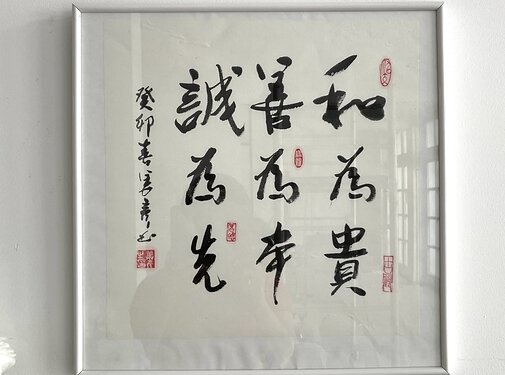 和為貴
善為本
誠為先
癸卯春